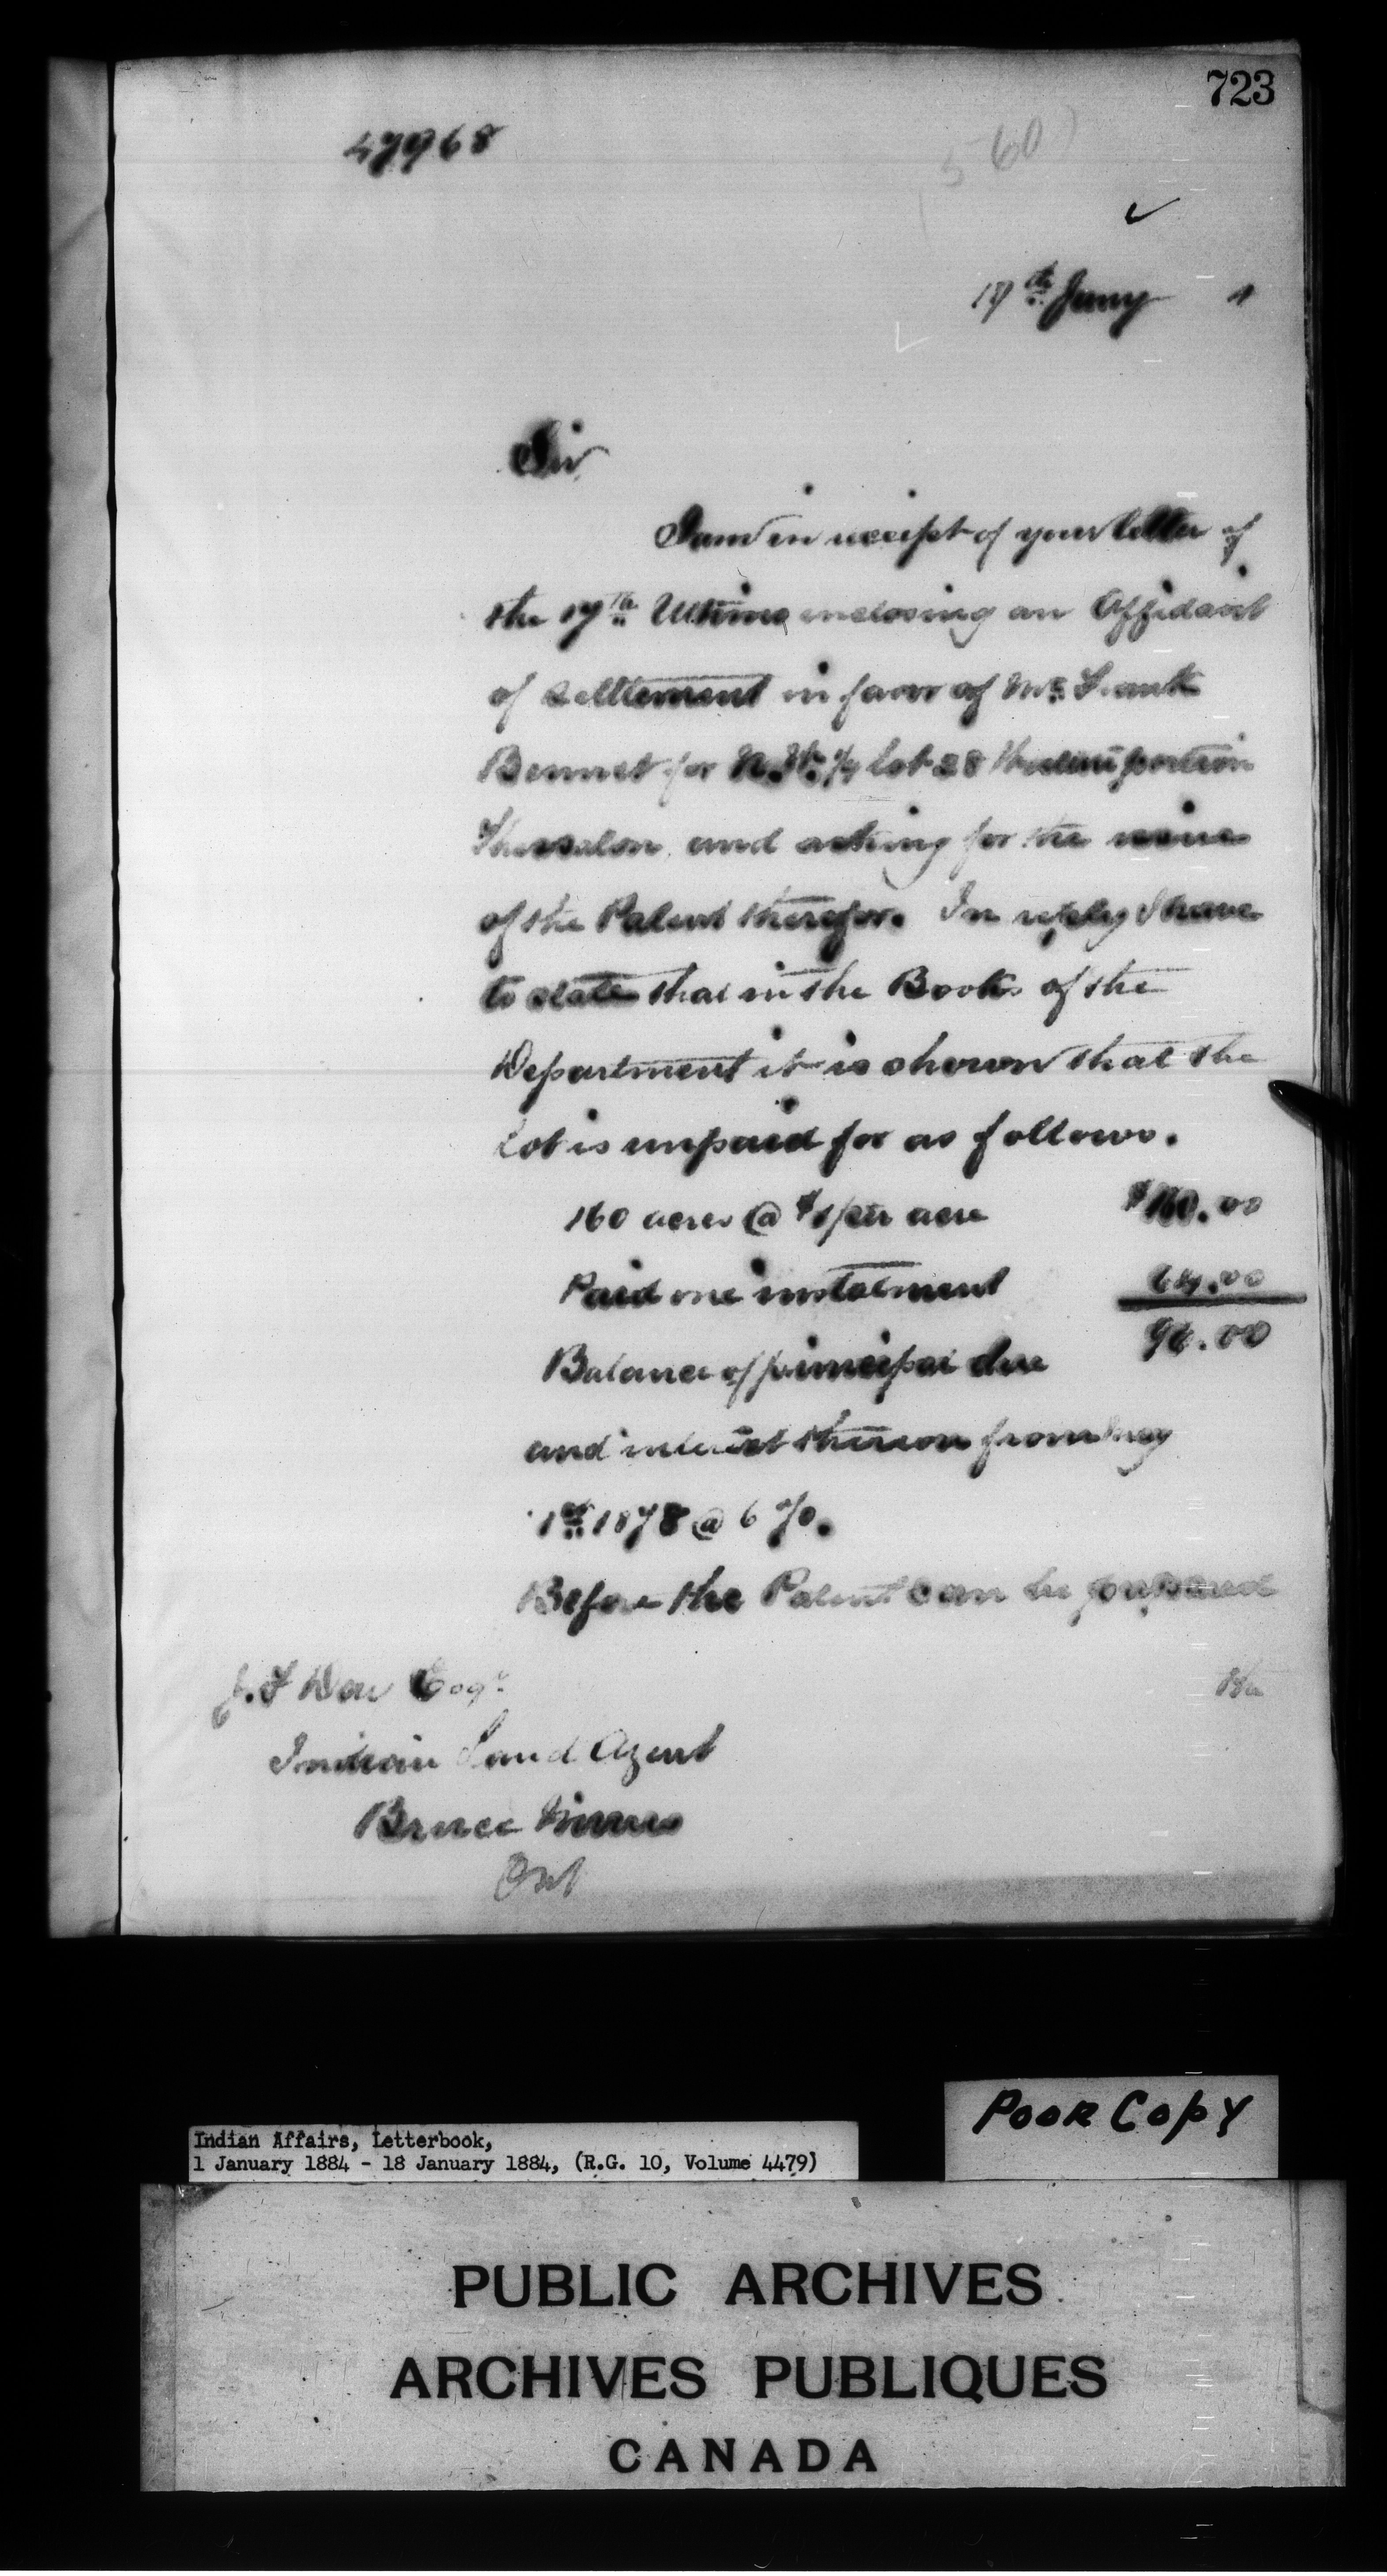 723
47968
560
17th Jany
Sir,
I am in receipt of your letter of
the 17th Ultimo enclosing an Affidavit
of settlement in favor of Mr. Frank
Bennet for N. ¼ lot 28 portion
Thessalon and asking for the
of the Patent therefor. In reply I have
to state that in the Books of the
Department it is shown that the
Lot is unpaid for as follows.
160 acres @ $1 per acre $160.00
Paid one instalment 64.00
Balance of principal due 96.00
and interest thereon from
1st 1878 @ 6 %.
Before the Patent can be prepared
the
J. F Day Esqr
Indian Land Agent
Bruce Mines
Ont
Poor Copy
Indian Affairs, Letterbook,
1 January 1884 - 18 January 1884, (R.G. 10, Volume 4479)
PUBLIC ARCHIVES
ARCHIVES PUBLIQUES
CANADA